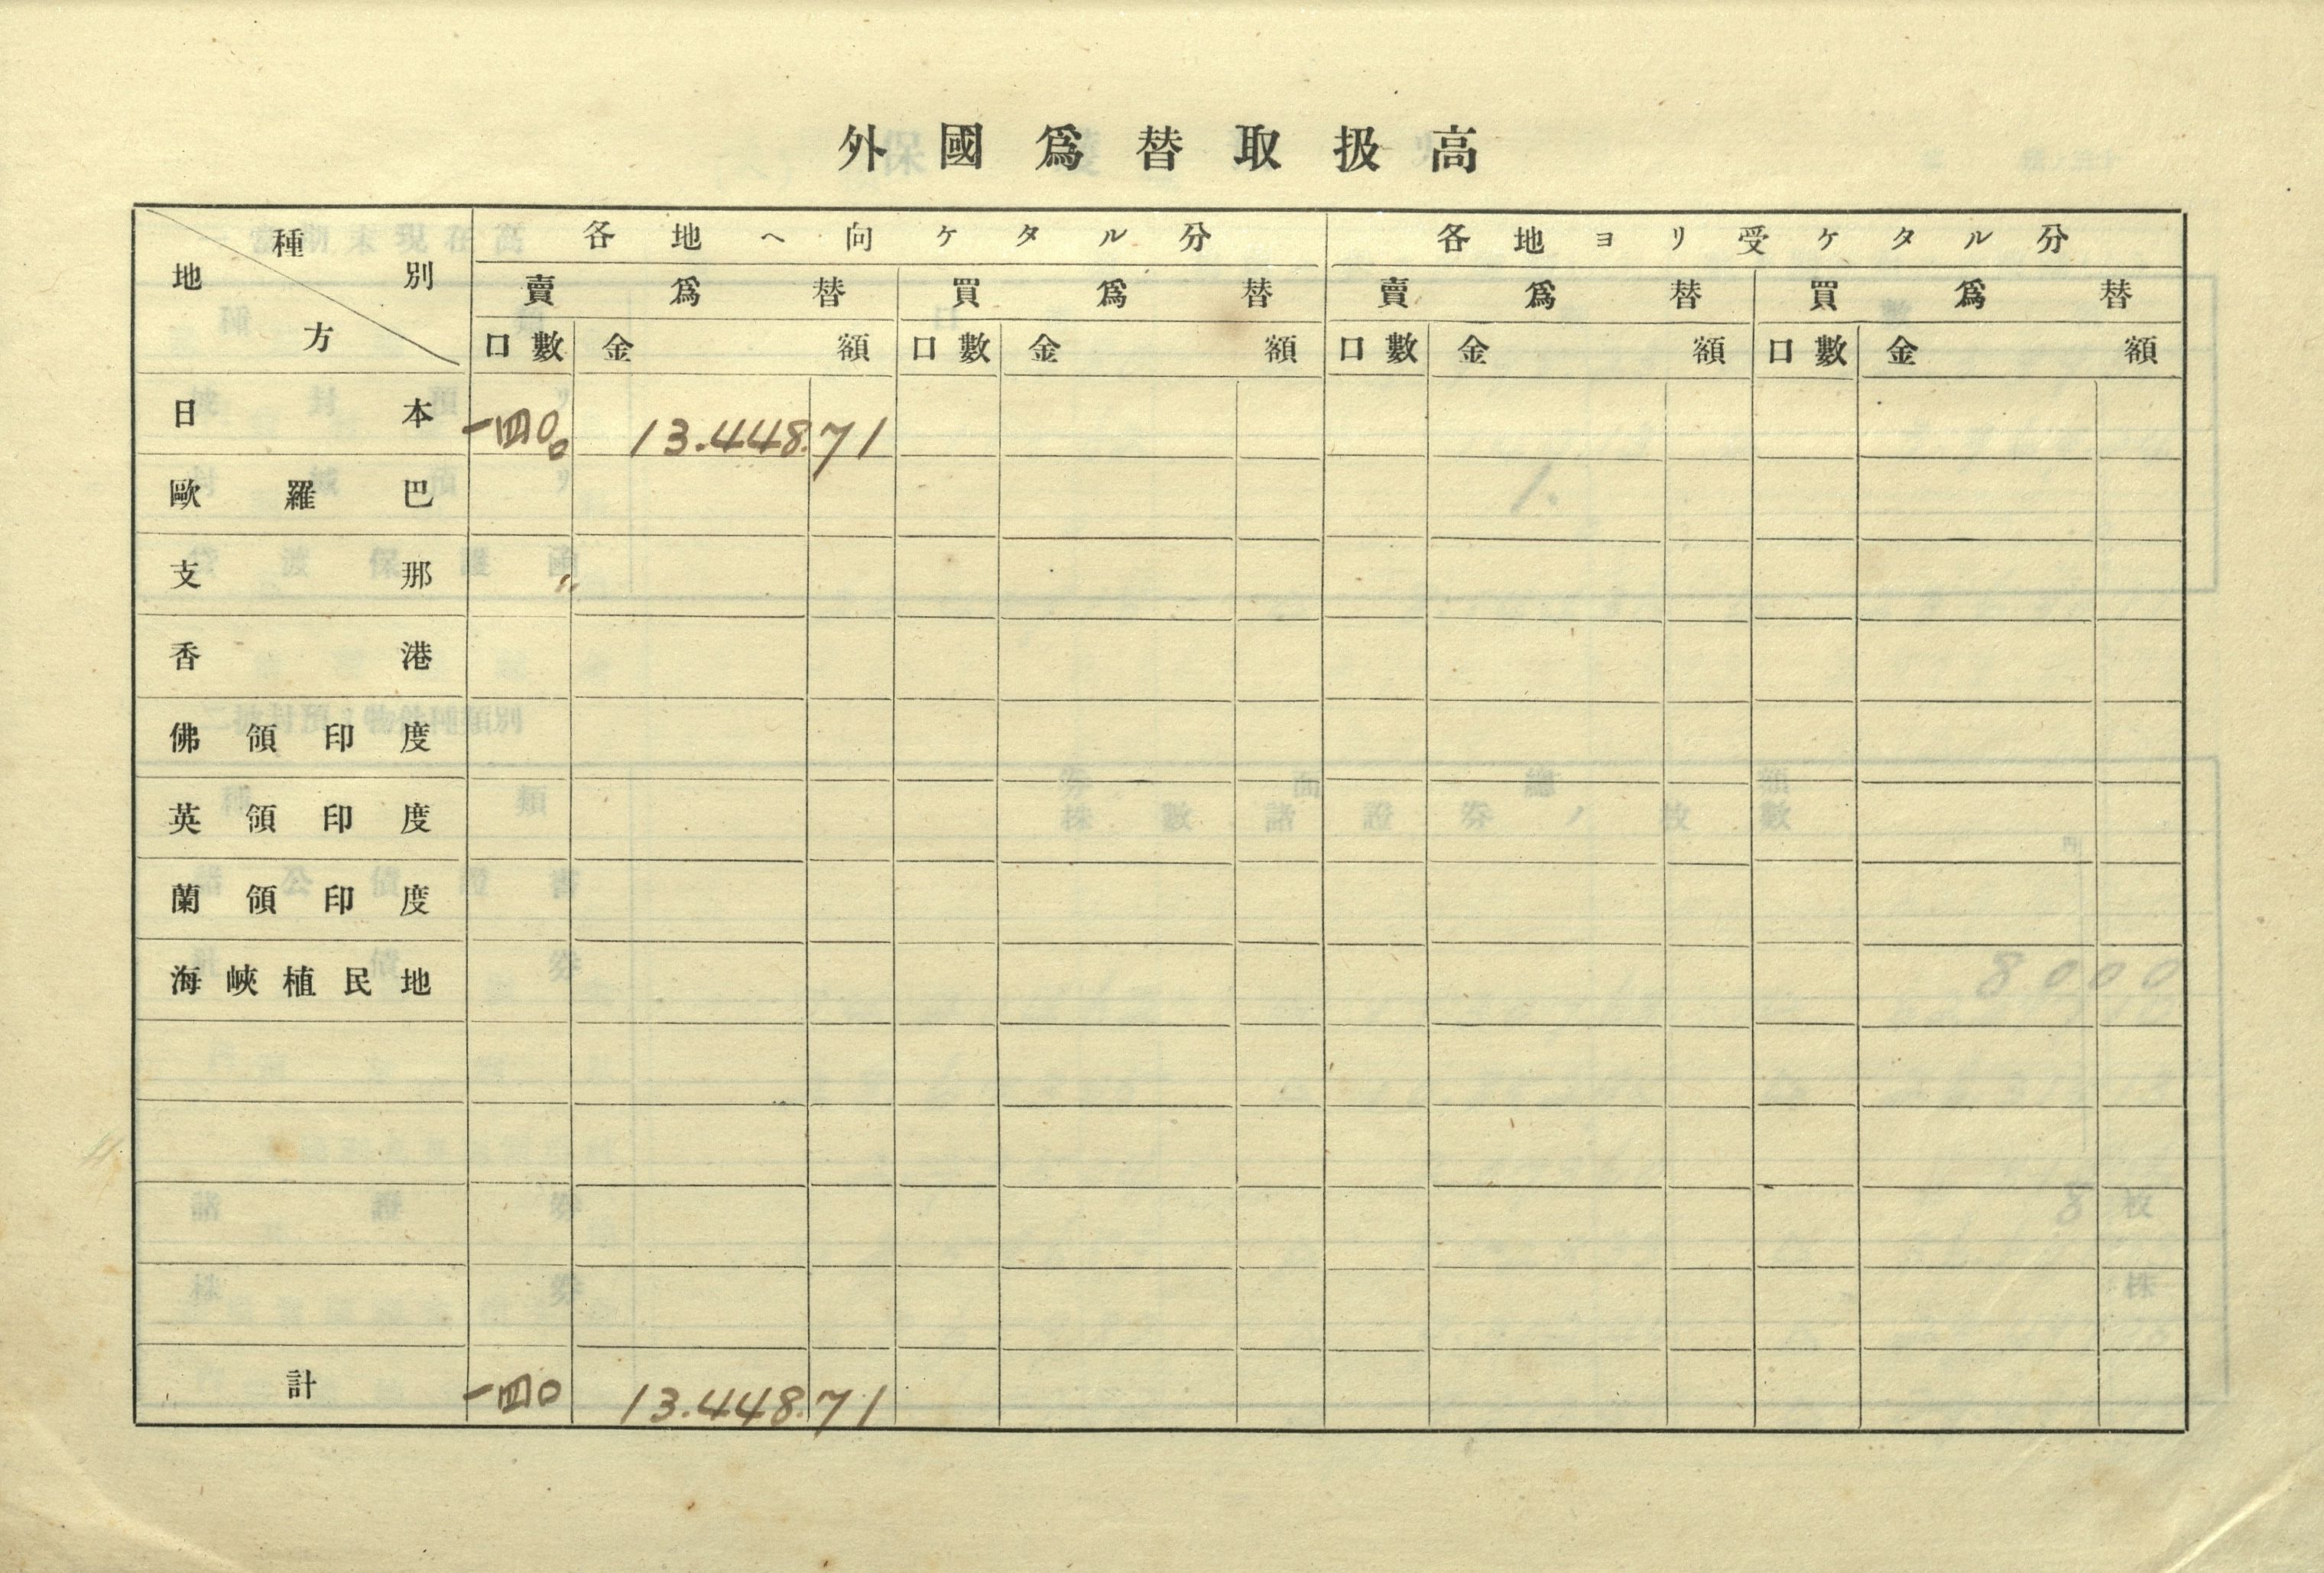 外國爲替取扱高
種別 地方 各地へ向ケタル分 各地ヨリ受ケタル分
賣爲替 買爲替 賣爲替 買爲替
口數 金額 口數 金額 口數 金額 口數 金額
日本 一四〇 13.448.71
歐羅巴
支那
香港
佛領印度
英領印度
蘭領印度
海峽植民地
計 一四〇 13.448.71